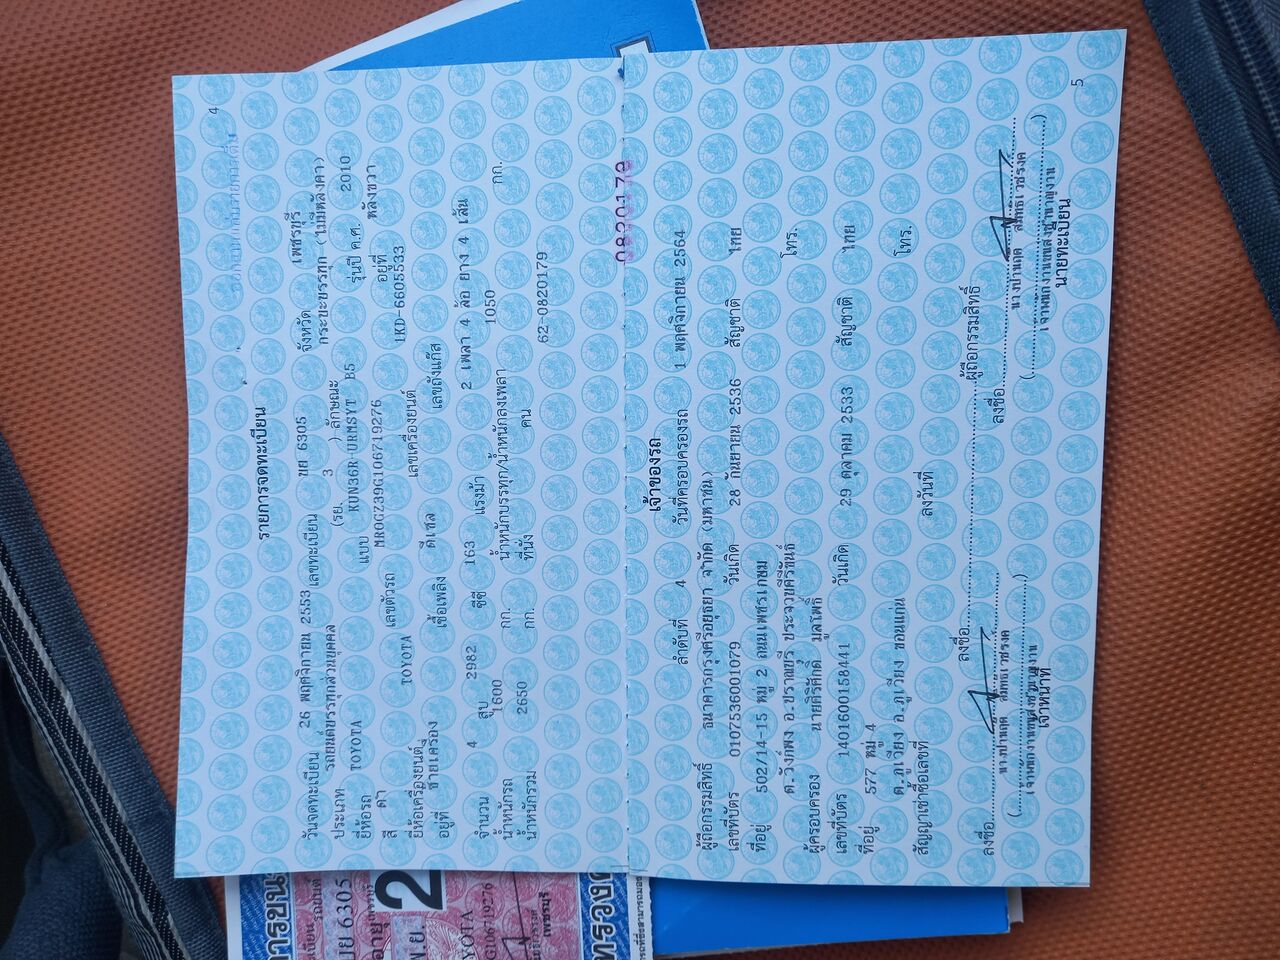 4
รายการจดทะเบียน
วันจดทะเบียน 26 พฤศจิกายน 2553 เลขทะเบียน บย 6305 จังหวัด เพชรบุรี
ประเภท รถยนต์บรรทุกส่วนบุคคล (รย. 3 ) ลักษณะ กระบะบรรทุก (ไม่มีหลังคา)
ยี่ห้อรถ TOYOTA แบบ KUN36R-URMSYT B5 รุ่นปี ค.ศ. 2010
สี ดำ เลขตัวรถ MROGZ39G106719276 อยู่ที่ หลังขวา
ยี่ห้อเครื่องยนต์ TOYOTA เลขเครื่องยนต์ 1KD-6605533
อยู่ที่ ซ้ายเครื่อง เชื้อเพลิง ดีเซล เลขถังแก๊ส
จำนวน 4 สูบ 2982 ซีซี 163 แรงม้า 2 เพลา 4 ล้อ ยาง 4 เส้น
น้ำหนักรถ 1600 กก. น้ำหนักบรรทุก/น้ำหนักลงเพลา 1050 กก.
น้ำหนักรวม 2650 กก. ที่นั่ง คน
62-0820179
0820179
เจ้าของรถ
ลำดับที่ 4 วันที่ครอบครองรถ 1 พฤศจิกายน 2564
ผู้ถือกรรมสิทธิ์ ธนาคารกรุงศรีอยุธยา จำกัด (มหาชน)
เลขที่บัตร 0107536001079 วันเกิด 28 กันยายน 2536 สัญชาติ ไทย
ที่อยู่ 502/14-15 หมู่ 2 ถนนเพชรเกษม
ต.วังก์พง อ.ปราณบุรี ประจวบคีรีขันธ์ โทร.
ผู้ครอบครอง นายศิริศักดิ์ มูลโพธิ์
เลขที่บัตร 1401600158441 วันเกิด 29 ตุลาคม 2533 สัญชาติ ไทย
ที่อยู่ 577 หมู่ 4
ต.ภูเวียง อ.ภูเวียง ขอนแก่น โทร.
สัญญาเช่าซื้อเลขที่ ลงวันที่
ลงชื่อ ผู้ถือกรรมสิทธิ์
ลงชื่อ ลงชื่อ
เจ้าหน้าที่ นายทะเบียน
5
บย 6305
2
พ.ย.
G106719276
เพชรบุรี